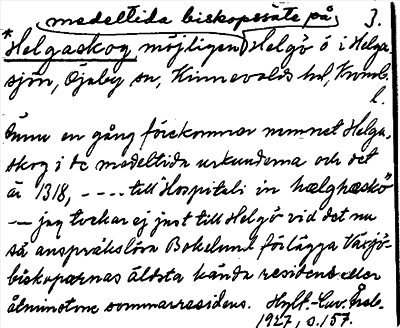 medeltida biskopssäte på 3.
*Helgaskog, möjligen Helgö ö i Helga
sjön, Öjaby sn, Kinnevalds hd, Kronob.
l.
Ännu en gång förekommer namnet Helga-
skog i de medeltida urkunderna och det
är 1318, ---- till "Hospitali in hælghæskó"
— jag tvekar ej just till Helgö vid det nu
så anspråkslösa Bokelund förlägga Växjö-
biskoparnas äldsta kända residens eller
åtminstone sommarresidens. Hylt.-Cav. Freb.
1927, s. 157.